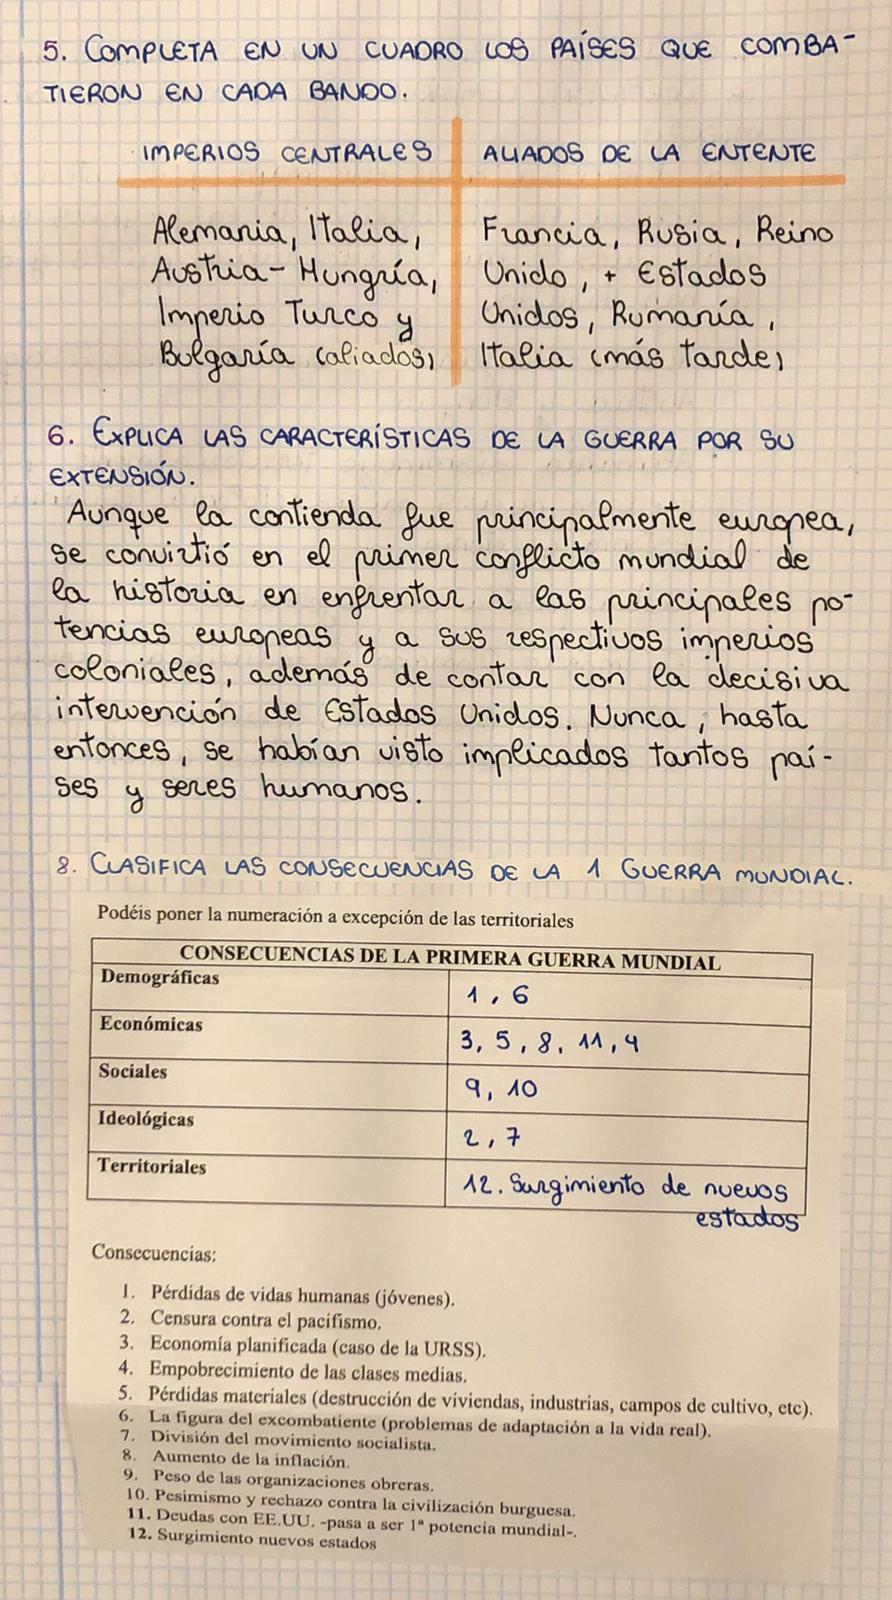 5. COMPLETA EN UN CUADRO LOS PAÍSES QUE COMBA-
TIERON EN CADA BANDO.
IMPERIOS CENTRALES
ALIADOS DE LA ENTENTE
Alemania, Italia,
Austria-Hungría,
Imperio Turco y
Bulgaría (aliados)
Francia, Rusia, Reino
Unido, + Estados
Unidos, Rumanía,
Italia (más tarde)
6. EXPLICA LAS CARACTERÍSTICAS DE LA GUERRA POR SU
EXTENSIÓN.
Aunque la contienda fue principalmente europea,
se convirtió en el primer conflicto mundial de
la historia en enfrentar a las principales po-
tencias europeas y a sus respectivos imperios
coloniales, además de contar con la decisiva
intervención de Estados Unidos. Nunca, hasta
entonces, se habían visto implicados tantos paí-
ses y seres humanos.
8. CLASIFICA LAS CONSECUENCIAS DE LA 1 GUERRA MUNDIAL.
Podéis poner la numeración a excepción de las territoriales
CONSECUENCIAS DE LA PRIMERA GUERRA MUNDIAL
Demográficas
1, 6
Económicas
3, 5, 8, 11, 4
Sociales
9, 10
Ideológicas
2, 7
Territoriales
12. Surgimiento de nuevos
estados
Consecuencias:
1. Pérdidas de vidas humanas (jóvenes).
2. Censura contra el pacifismo.
3. Economía planificada (caso de la URSS).
4. Empobrecimiento de las clases medias.
5. Pérdidas materiales (destrucción de viviendas, industrias, campos de cultivo, etc).
6. La figura del excombatiente (problemas de adaptación a la vida real).
7. División del movimiento socialista.
8. Aumento de la inflación.
9. Peso de las organizaciones obreras.
10. Pesimismo y rechazo contra la civilización burguesa.
11. Deudas con EE.UU. -pasa a ser 1ª potencia mundial-.
12. Surgimiento nuevos estados